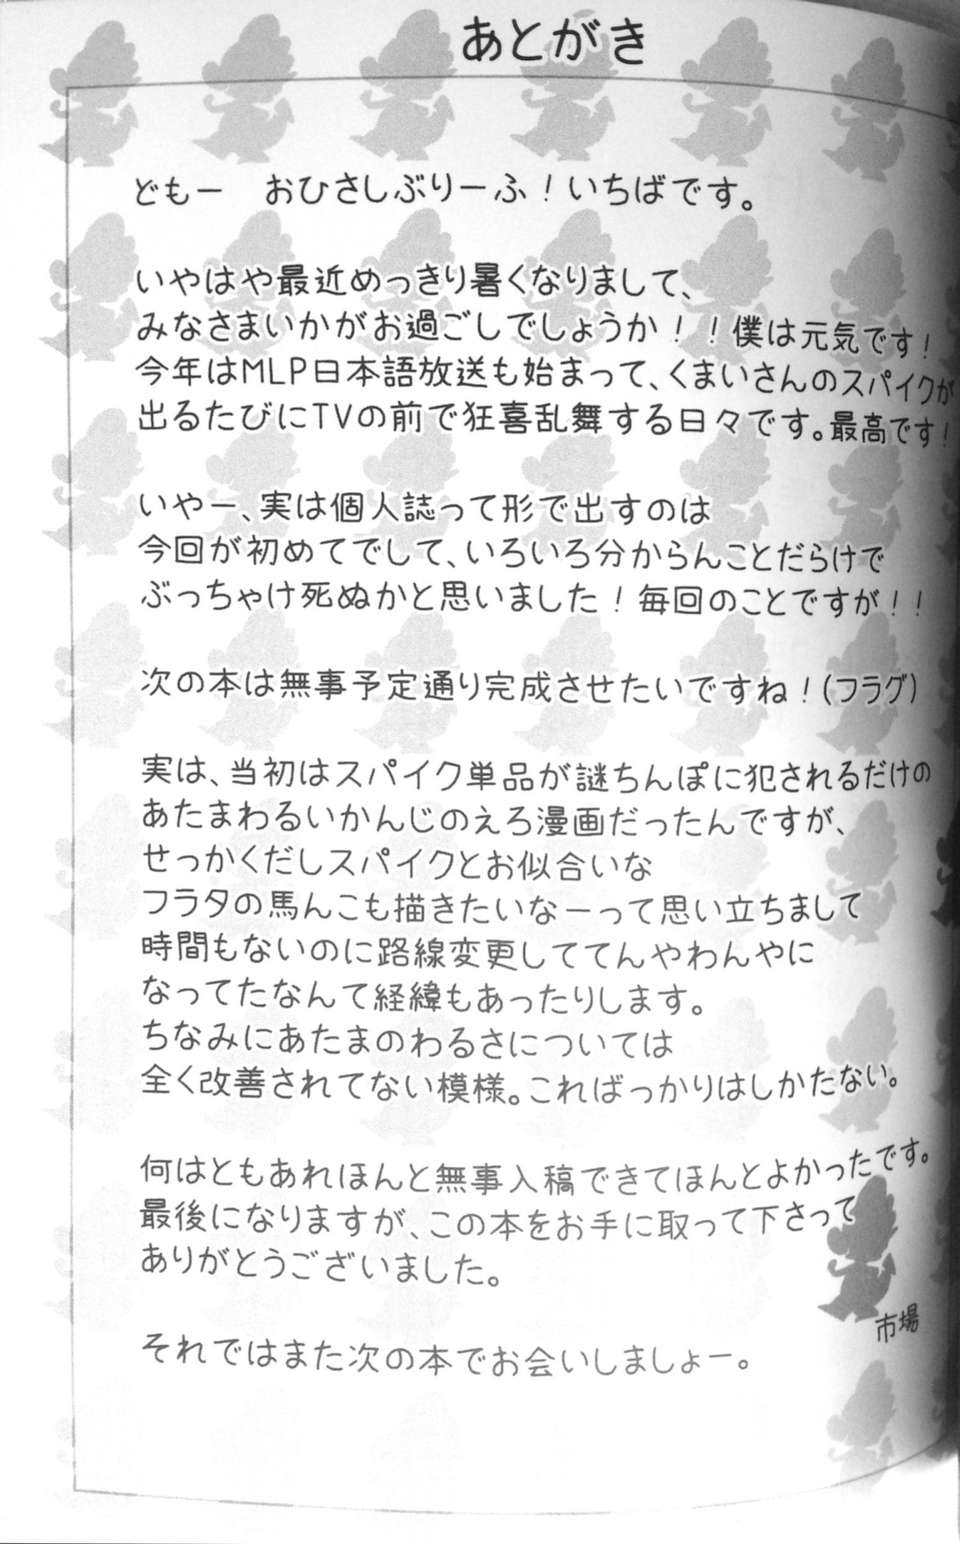 あとがき
どもー　おひさしぶりーふ！いちばです。
いやはや最近めっきり暑くなりまして、
みなさまいかがお過ごしでしょうか！！僕は元気です！
今年はMLP日本語放送も始まって、くまいさんのスパイクが
出るたびにTVの前で狂喜乱舞する日々です。最高です！
いやー、実は個人誌って形で出すのは
今回が初めてでして、いろいろ分からんことだらけで
ぶっちゃけ死ぬかと思いました！毎回のことですが！！
次の本は無事予定通り完成させたいですね！(フラグ)
実は、当初はスパイク単品が謎ちんぽに犯されるだけの
あたまわるいかんじのえろ漫画だったんですが、
せっかくだしスパイクとお似合いな
フラタの馬んこも描きたいなーって思い立ちまして
時間もないのに路線変更しててんやわんやに
なってたなんて経緯もあったりします。
ちなみにあたまのわるさについては
全く改善されてない模様。こればっかりはしかたない。
何はともあれほんと無事入稿できてほんとよかったです。
最後になりますが、この本をお手に取って下さって
ありがとうございました。
市場
それではまた次の本でお会いしましょー。